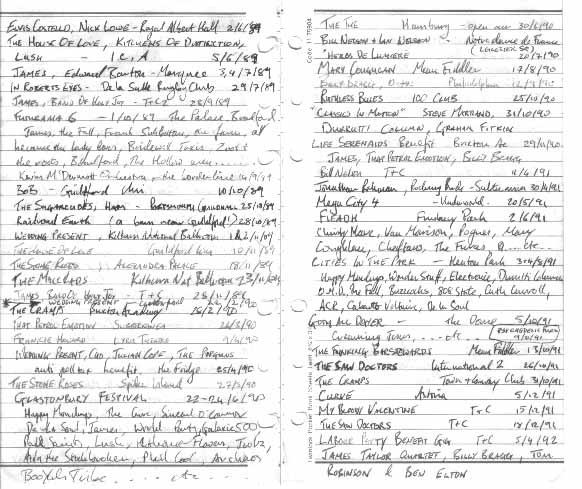 ELVIS COSTELLO, NICK LOWE - Royal Albert Hall 2/6/89
THE HOUSE OF LOVE, KITCHENS OF DISTINCTION,
LUSH - I C A 5/6/89
JAMES, Edward Barton - Marquee 3,4/7/89
IN ROBERTS EYES - De la Salle Rugby Club 29/7/89
JAMES, BAND OF HOLY JOY - T+C2 28/9/89
FUTURAMA 6 - 1/10/89 The Palace, Bradford
James, The Fall, Frank Sidebottom,
because the lady loves, Birdwick Toxis, Zoot &
the roots, Bitumford, The Hollow men
Kevin McDermott Orchestra - the borderline 14/9/89
BOB - Guildford Uni 10/10/89
THE SUGARCUBES, Ham - PORTSMOUTH GUILDHALL 25/10/89
Railroad Earth (a barn near Guildford!) 28/10/89
WEDDING PRESENT, Kilburn National Ballroom 1&2/11/89
THE HOUSE OF LOVE Guildford Uni 10/11/89
THE STONE ROSES ALEXANDRA PALACE 18/11/89
THE MACC LADS Kilburn Nat Ballroom 23/11/89
JAMES, BAND OF HOLY JOY - T+C 25/11/89
WEDDING PRESENT - Guildford /2/90
THE CRAMPS Brixton Academy 15/2/90
THAT PETROL EMOTION SUBTERANEA 26/3/90
FRANCIS HOWARD LYRIC THEATRE 9/4/90
WEDDING PRESENT, CUD, JULIAN COPE, THE POGUES
anti poll tax benefit, the Fridge 25/4/90
THE STONE ROSES Spike Island 27/5/90
GLASTONBURY FESTIVAL 22-24/6/90
Happy Mondays, The Cure, Sinead O'Connor
De La Soul, James, World Party, Galaxie 500
Pale Saints, Lush, Hothouse Flowers, Trotz,
Adam the Stockbroker, Phill Cool, Archaos
Booyah Tribe ..... etc ...
THE THE Hamburg - open air 30/6/90
BILL NELSON & IAN NELSON - Notre dame de France
"HEROS DE LUMIERE" (LEICESTER SQ) 20/7/90
MARY COUGHLAN Mean Fiddler 17/8/90
BILLY BRAGG, Philadelphia 12/9/90
RUTHLESS BLUES 100 CLUB 25/10/90
"CLASSICS IN MOTION" STEVE MARTLAND, 31/10/90
DURRUTTI COLUMN, GRAHAM FITKIN
LIFE SERENADES Benefit Brixton Ac 29/11/90
JAMES, THAT PETROL EMOTION, BILLY BRAGG
Bill Nelson T+C 4/4/91
Jonathan Richman, Rockingbirds - Subterrania 30/4/91
Mega City 4 - Underworld 20/5/91
FLEADH Finsbury Park 2/6/91
Christy Moore, Van Morrison, Pogues, Mary
Coughlane, Chieftans, The Fureys, ... etc...
CITIES IN THE PARK - Heaton Park 3+4/8/91
Happy Mondays, Wonder Stuff, Electronic, Durutti Column
O.M.D, The Fall, Buzzcocks, 808 State, Cath Carroll,
ACR, Cabaret Voltaire, De La Soul
GOTH ALL DAYER - The Venue 5/10/91
Screaming Jones, ... etc
9/10/91
THE FUNKING BARSTEWARDS Mean Fiddler 13/10/91
THE SAW DOCTORS International 2 26/10/91
THE CRAMPS Town + Country Club 31/10/91
CURVE Astoria 5/12/91
MY BLOODY VALENTINE T+C 15/12/91
THE SAW DOCTORS T+C 18/12/91
LABOUR PARTY BENEFIT GIG T+C 5/4/92
JAMES TAYLOR QUARTET, BILLY BRAGG, TOM
ROBINSON & BEN ELTON